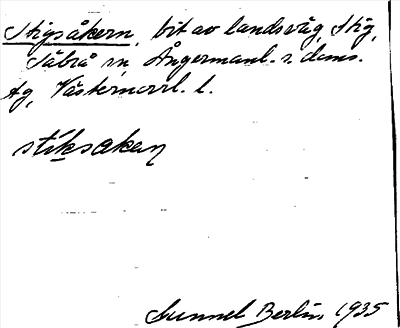 Stigsåkern, bit av landsväg, Stig,
Säbrå sn, Ångermanl. s. doms.
tg, Västernorrl. l.
stiksakaṇ
Gunnel Berlin 1935